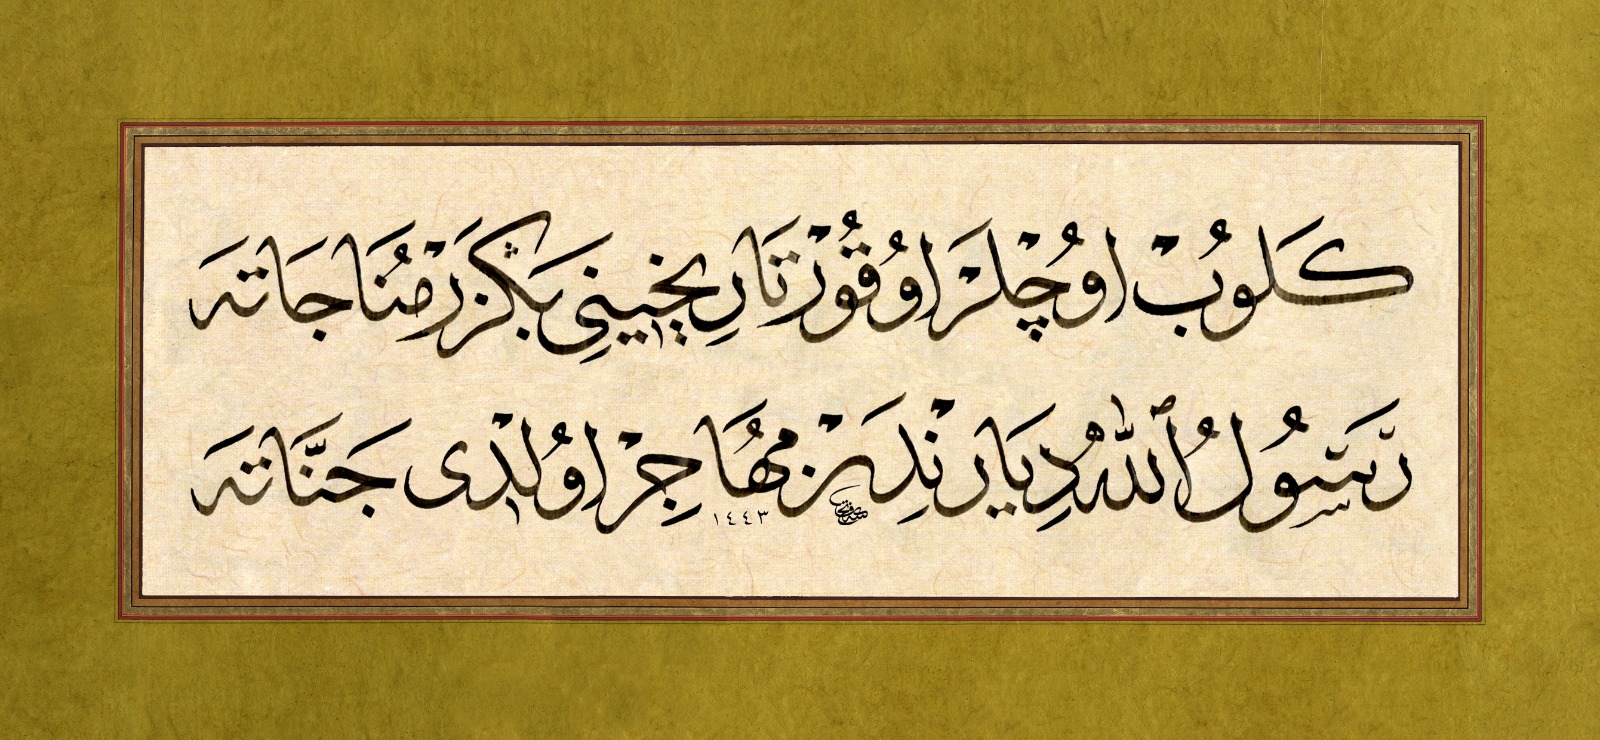 كَلوُبْ اوُچْلَرْ اوُقوُرْ تَارِيخِينِى بَڭزَرْ مُنَاجَاتَه
رَسُولُ ٱللّٰهْ دِيَارنِدَنْ مُهَاجِرْ اوُلْدى جَنَّاتَه
١٤٤٣